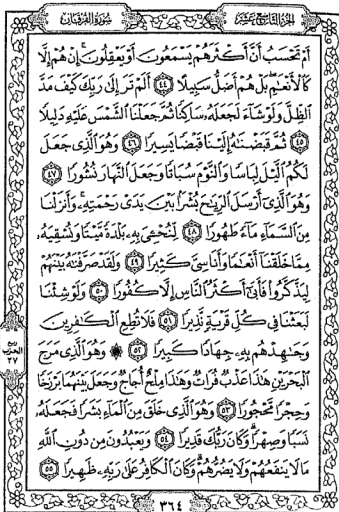 الجزء التاسع عشر
سورة الفرقان
أَمْ تَحْسَبُ أَنَّ أَكْثَرَهُمْ يَسْمَعُونَ أَوْ يَعْقِلُونَ إِنْ هُمْ إِلَّا
كَالْأَنْعَٰمِ بَلْ هُمْ أَضَلُّ سَبِيلًا ٤٤ أَلَمْ تَرَ إِلَىٰ رَبِّكَ كَيْفَ مَدَّ
الظِّلَّ وَلَوْ شَاءَ لَجَعَلَهُ سَاكِنًا ثُمَّ جَعَلْنَا الشَّمْسَ عَلَيْهِ دَلِيلًا
٤٥ ثُمَّ قَبَضْنَٰهُ إِلَيْنَا قَبْضًا يَسِيرًا ٤٦ وَهُوَ الَّذِي جَعَلَ
لَكُمُ الَّيْلَ لِبَاسًا وَالنَّوْمَ سُبَاتًا وَجَعَلَ النَّهَارَ نُشُورًا ٤٧
وَهُوَ الَّذِي أَرْسَلَ الرِّيَٰحَ بُشْرًا بَيْنَ يَدَيْ رَحْمَتِهِ وَأَنزَلْنَا
مِنَ السَّمَاءِ مَاءً طَهُورًا ٤٨ لِّنُحْـِۧيَ بِهِ بَلْدَةً مَّيْتًا وَنُسْقِيَهُ
مِمَّا خَلَقْنَا أَنْعَٰمًا وَأَنَاسِيَّ كَثِيرًا ٤٩ وَلَقَدْ صَرَّفْنَٰهُ بَيْنَهُمْ
لِيَذَّكَّرُوا فَأَبَىٰ أَكْثَرُ النَّاسِ إِلَّا كُفُورًا ٥٠ وَلَوْ شِئْنَا
لَبَعَثْنَا فِي كُلِّ قَرْيَةٍ نَّذِيرًا ٥١ فَلَا تُطِعِ الْكَٰفِرِينَ
وَجَٰهِدْهُم بِهِ جِهَادًا كَبِيرًا ٥٢ ۞ وَهُوَ الَّذِي مَرَجَ
الْبَحْرَيْنِ هَٰذَا عَذْبٌ فُرَاتٌ وَهَٰذَا مِلْحٌ أُجَاجٌ وَجَعَلَ بَيْنَهُمَا بَرْزَخًا
وَحِجْرًا مَّحْجُورًا ٥٣ وَهُوَ الَّذِي خَلَقَ مِنَ الْمَاءِ بَشَرًا فَجَعَلَهُ
نَسَبًا وَصِهْرًا وَكَانَ رَبُّكَ قَدِيرًا ٥٤ وَيَعْبُدُونَ مِن دُونِ اللَّهِ
مَا لَا يَنفَعُهُمْ وَلَا يَضُرُّهُمْ وَكَانَ الْكَافِرُ عَلَىٰ رَبِّهِ ظَهِيرًا ٥٥
الحزب
٣٧
٣٦٤